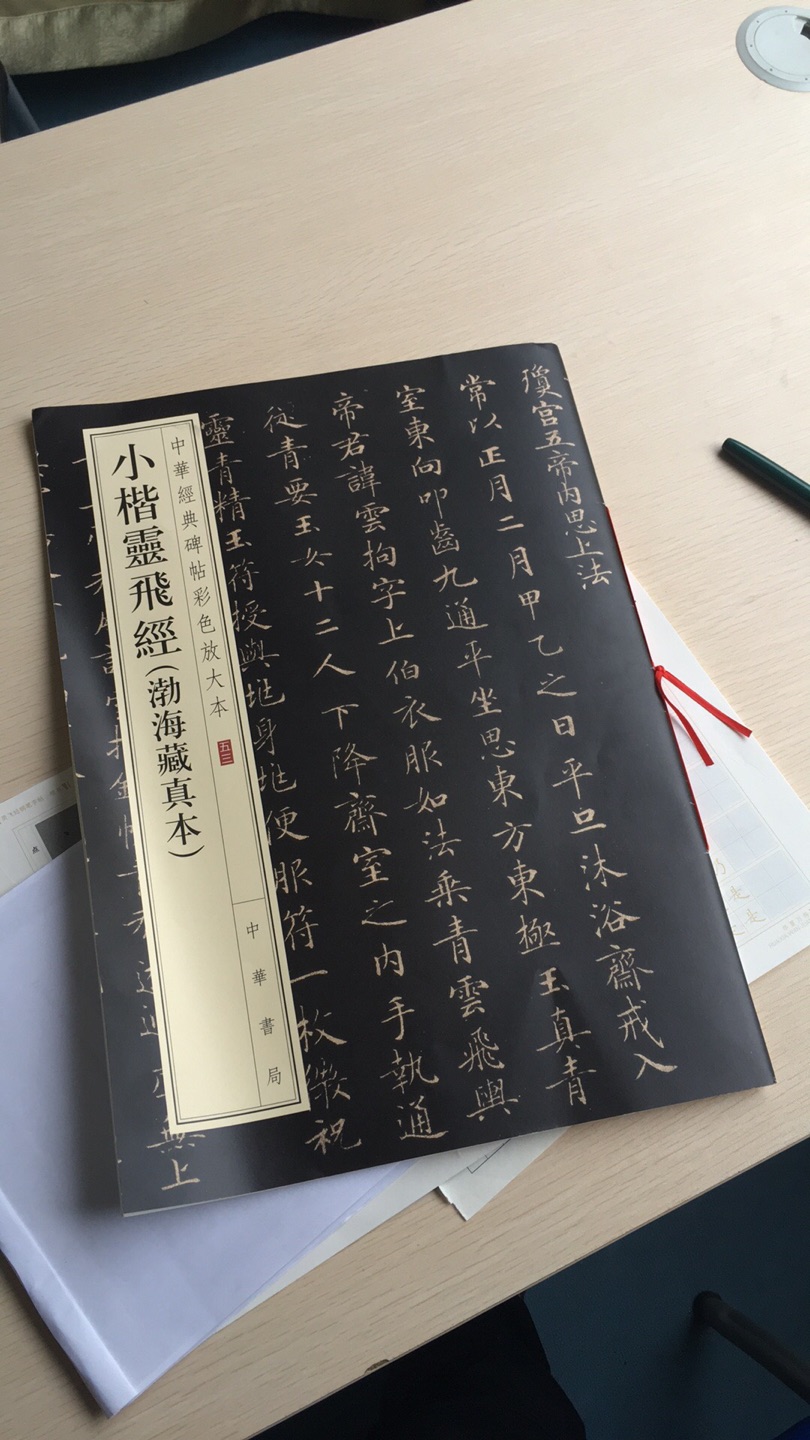 瓊宫五帝内思上法
常以正月二月甲乙之日平旦沐浴齋戒入
室東向叩齒九通平坐思東方東極玉真青
帝君諱雲拘字上伯衣服如法乘青雲飛輿
從青要玉女十二人下降齋室之内手執通
靈青精玉符授與兆身兆便服符一枚微祝
中華經典碑帖彩色放大本
五三
中華書局
小楷靈飛經(渤海藏真本)
点
是